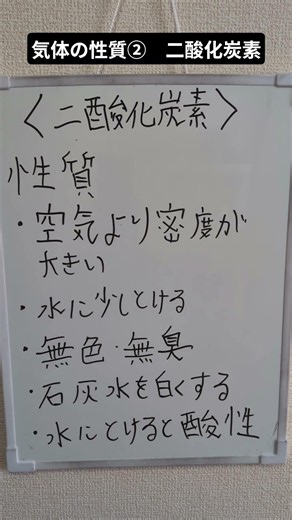 気体の性質② 二酸化炭素
〈二酸化炭素〉
性質
・空気より密度が
大きい
・水に少しとける
・無色・無臭
・石灰水を白くする
・水にとけると酸性